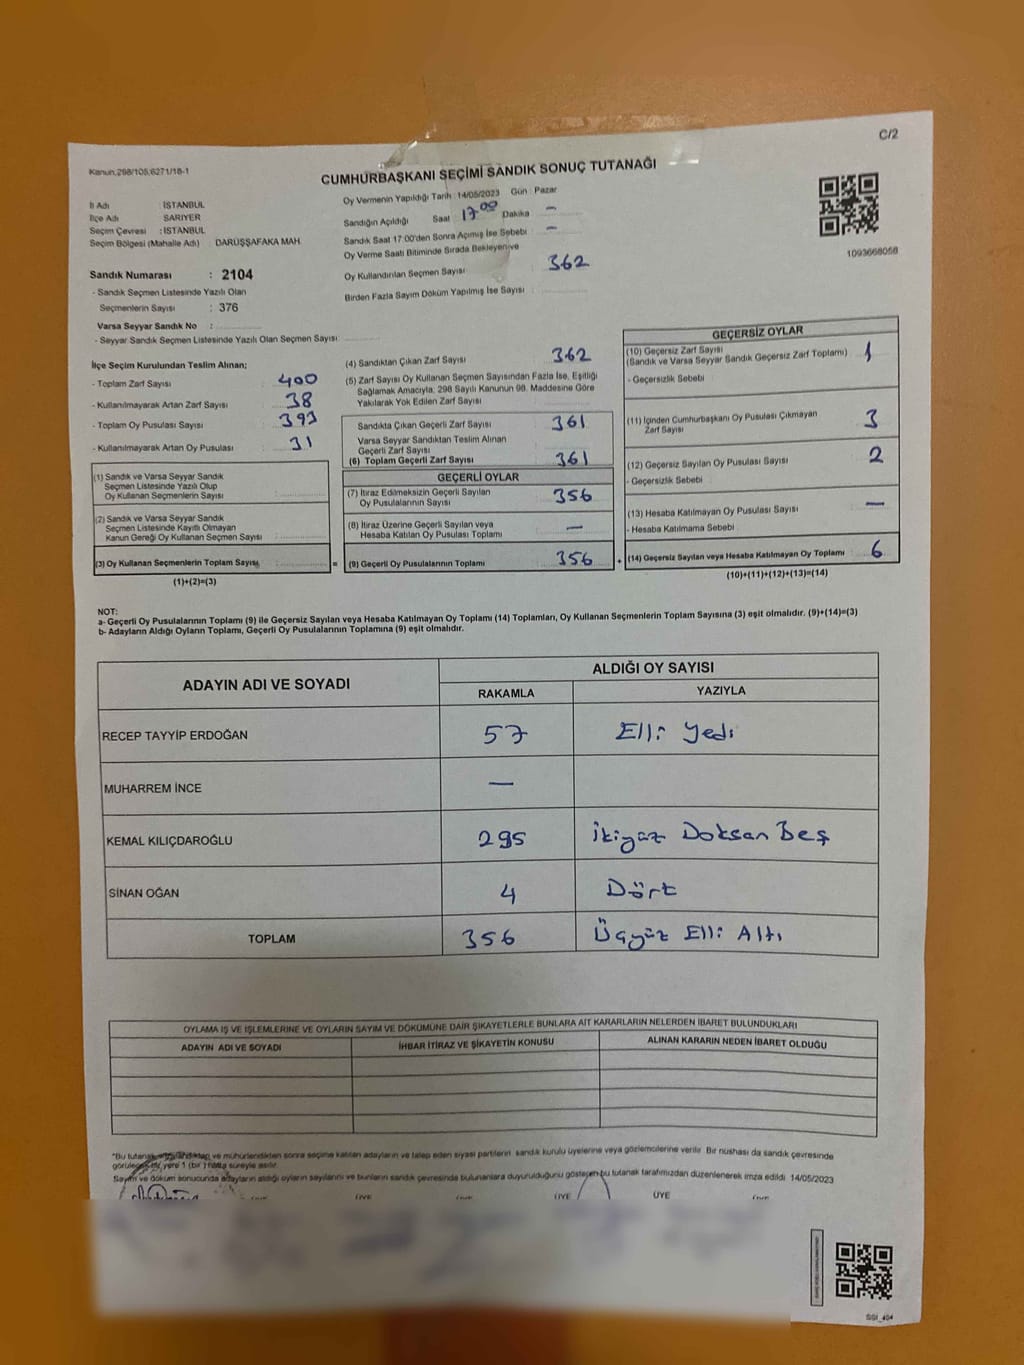 C/2
Kanun,298/105;6271/18-1
CUMHURBAŞKANI SEÇİMİ SANDIK SONUÇ TUTANAĞI
İl Adı : İSTANBUL
İlçe Adı : SARIYER
Seçim Çevresi : İSTANBUL
Seçim Bölgesi (Mahalle Adı) DARÜŞŞAFAKA MAH.
Sandık Numarası : 2104
- Sandık Seçmen Listesinde Yazılı Olan
Seçmenlerin Sayısı : 376
Varsa Seyyar Sandık No :
- Seyyar Sandık Seçmen Listesinde Yazılı Olan Seçmen Sayısı:
Oy Vermenin Yapıldığı Tarih :14/05/2023 Gün : Pazar
Sandığın Açıldığı Saat 17 00 Dakika —
Sandık Saat 17:00'den Sonra Açımış İse Sebebi : —
Oy Verme Saati Bitiminde Sırada Bekleyen ve
Oy Kullandırılan Seçmen Sayısı : 362
Birden Fazla Sayım Döküm Yapılmış İse Sayısı :
1093668058
İlçe Seçim Kurulundan Teslim Alınan;
- Toplam Zarf Sayısı : 400
- Kullanılmayarak Artan Zarf Sayısı : 38
- Toplam Oy Pusulası Sayısı : 393
- Kullanılmayarak Artan Oy Pusulası : 31
(1) Sandık ve Varsa Seyyar Sandık
Seçmen Listesinde Yazılı Olup
Oy Kullanan Seçmenlerin Sayısı :
(2) Sandık ve Varsa Seyyar Sandık
Seçmen Listesinde Kayıtlı Olmayan
Kanun Gereği Oy Kullanan Seçmen Sayısı :
(3) Oy Kullanan Seçmenlerin Toplam Sayısı :
(1)+(2)=(3)
=
(4) Sandıktan Çıkan Zarf Sayısı : 362
(5) Zarf Sayısı Oy Kullanan Seçmen Sayısından Fazla İse, Eşitliği
Sağlamak Amacıyla, 298 Sayılı Kanunun 98. Maddesine Göre
Yakılarak Yok Edilen Zarf Sayısı :
Sandıkta Çıkan Geçerli Zarf Sayısı : 361
Varsa Seyyar Sandıktan Teslim Alınan
Geçerli Zarf Sayısı :
(6) Toplam Geçerli Zarf Sayısı : 361
GEÇERLİ OYLAR
(7) İtiraz Edilmeksizin Geçerli Sayılan
Oy Pusulalarının Sayısı : 356
(8) İtiraz Üzerine Geçerli Sayılan veya
Hesaba Katılan Oy Pusulası Toplamı : —
(9) Geçerli Oy Pusulalarının Toplamı : 356
+
GEÇERSİZ OYLAR
(10) Geçersiz Zarf Sayısı
(Sandık ve Varsa Seyyar Sandık Geçersiz Zarf Toplamı) : 1
- Geçersizlik Sebebi :
(11) İçinden Cumhurbaşkanı Oy Pusulası Çıkmayan
Zarf Sayısı : 3
(12) Geçersiz Sayılan Oy Pusulası Sayısı : 2
- Geçersizlik Sebebi :
(13) Hesaba Katılmayan Oy Pusulası Sayısı : —
- Hesaba Katılmama Sebebi :
(14) Geçersiz Sayılan veya Hesaba Katılmayan Oy Toplamı : 6
(10)+(11)+(12)+(13)=(14)
NOT:
a- Geçerli Oy Pusulalarının Toplamı (9) ile Geçersiz Sayılan veya Hesaba Katılmayan Oy Toplamı (14) Toplamları, Oy Kullanan Seçmenlerin Toplam Sayısına (3) eşit olmalıdır. (9)+(14)=(3)
b- Adayların Aldığı Oyların Toplamı, Geçerli Oy Pusulalarının Toplamına (9) eşit olmalıdır.
ADAYIN ADI VE SOYADI ALDIĞI OY SAYISI
RAKAMLA YAZIYLA
RECEP TAYYİP ERDOĞAN 57 Elli Yedi
MUHARREM İNCE —
KEMAL KILIÇDAROĞLU 295 İkiyüz Doksan Beş
SİNAN OĞAN 4 Dört
TOPLAM 356 Üçyüz Elli Altı
OYLAMA İŞ VE İŞLEMLERİNE VE OYLARIN SAYIM VE DÖKÜMÜNE DAİR ŞİKAYETLERLE BUNLARA AİT KARARLARIN NELERDEN İBARET BULUNDUKLARI
ADAYIN ADI VE SOYADI İHBAR İTİRAZ VE ŞİKAYETİN KONUSU ALINAN KARARIN NEDEN İBARET OLDUĞU
"Bu tutanak ve mühürlendikten sonra seçime katılan adayların ve talep eden siyasi partilerin sandık kurulu üyelerine veya gözlemcilerine verilir. Bir nüshası da sandık çevresinde
yere 1 (bir) hafta süreyle asılır.
Sayım ve döküm sonucunda adayların aldığı oyların sayılarını ve bunların sandık çevresinde bulunanlara duyurulduğunu gösteren bu tutanak tarafımızdan düzenlenerek imza edildi. 14/05/2023
ÜYE ÜYE ÜYE ÜYE
SSI_404